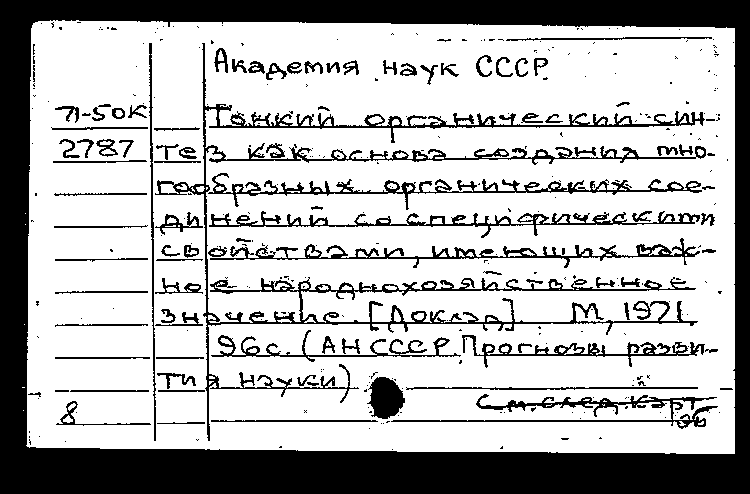 Академия наук СССР
71-50К Тонкий органический син-
2787 тез как основа создания мно-
гообразных органических сое-
динений со специфическими
свойствами, имеющих важ-
ное народнохозяйственное
значение. [Доклад]. М, 1971.
96с. (АН СССР. Прогнозы разви-
тия науки)
См. след. карт
8